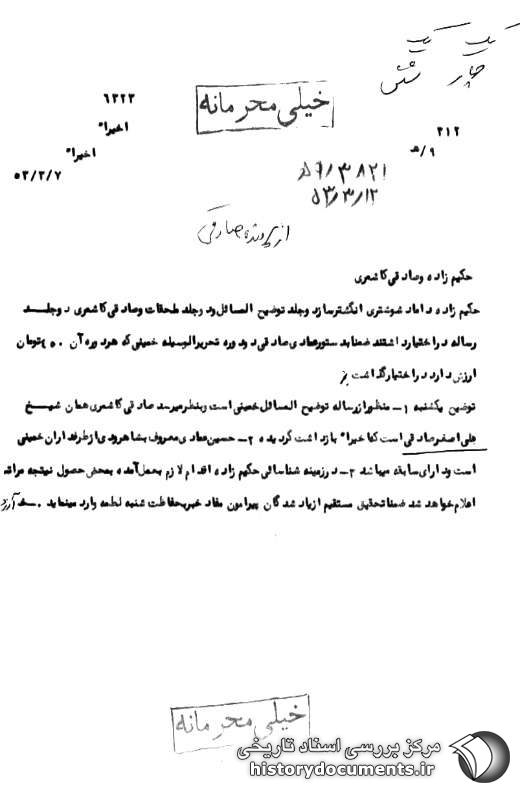 یک یک
چاپ شش
خیلی محرمانه
۶۳۲۳
۳۱۲
اخیراً
۹/هـ
اخیراً
۵۳/۳/۷
۵۹/۳۸۲۱
۵۳/۳/۱۲
از پرونده صادقی
حکیم زاده و صادقی کاشمری
حکیم زاده داماد شوشتری انگشترساز دو جلد توضیح المسائل و دو جلد ملحقات وصادقی کاشمری دو جلد
رساله در اختیار داشتند ضمنا بدستور عمادی صادقی دو دوره تحریرالوسیله خمینی که هر دوره آن ۴۵۰ تومان
ارزش دارد در اختیار گذاشت
توضیح یکشنبه ۱- منظور از رساله توضیح المسائل خمینی است و بنظر میرسد صادقی کاشمری همان شیخ
علی اصغر صادقی است که اخیراً بازداشت گردیده ۲- حسین عمادی معروف بشاهرودی از طرفداران خمینی
است و دارای سابقه میباشد ۳- در زمینه شناسائی حکیم زاده اقدام لازم بعمل آمده بمحض حصول نتیجه مراتب
اعلام خواهد شد ضمنا تحقیق مستقیم از یاد شدگان پیرامون مفاد خبر بحفاظت شنبه لطمه وارد مینماید.
خیلی محرمانه
مرکز بررسی اسناد تاریخی
historydocuments.ir